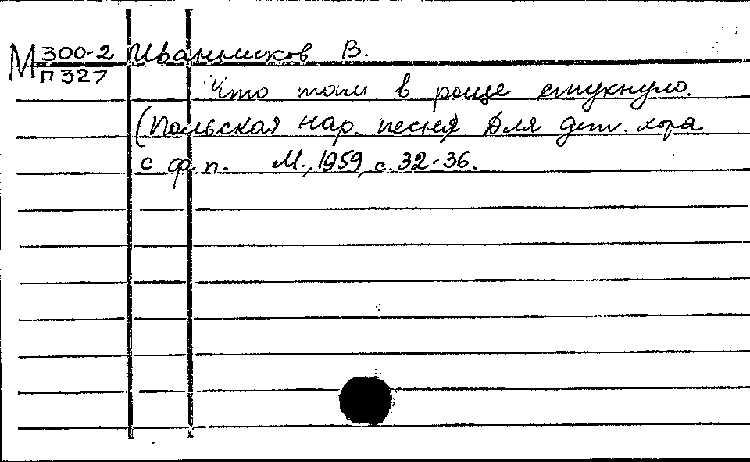 М 300-2 Иванников В.
П 327
Что там в роще стукнуло.
(Польская нар. песня) Для дет. хора
с ф.п. М., 1959, с. 32-36.